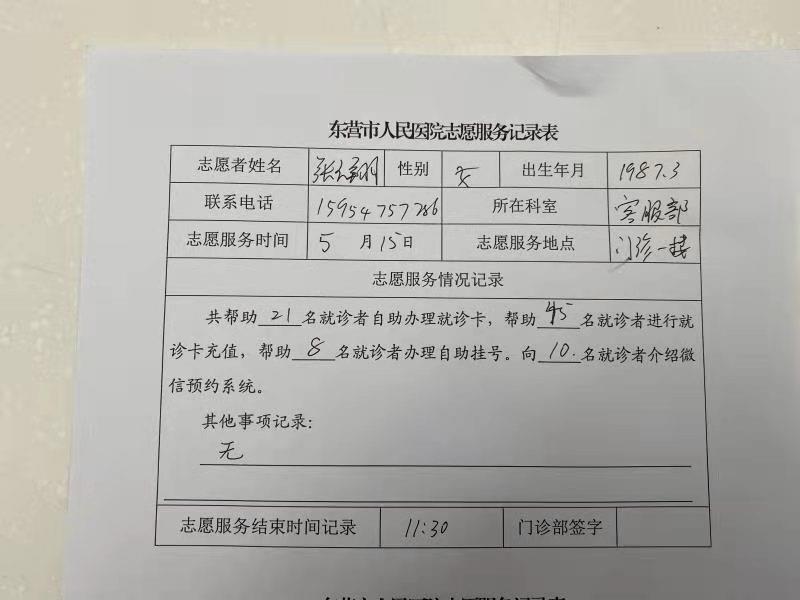 东营市人民医院志愿服务记录表
志愿者姓名 张 性别 女 出生年月 1987.3
联系电话 15954757286 所在科室 客服部
志愿服务时间 5 月 15 日 志愿服务地点 门诊一楼
志愿服务情况记录
共帮助 21 名就诊者自助办理就诊卡，帮助 45 名就诊者进行就
诊卡充值，帮助 8 名就诊者办理自助挂号。向 10. 名就诊者介绍微
信预约系统。
其他事项记录：
无
志愿服务结束时间记录 11:30 门诊部签字
东营市人民医院志愿服务记录表